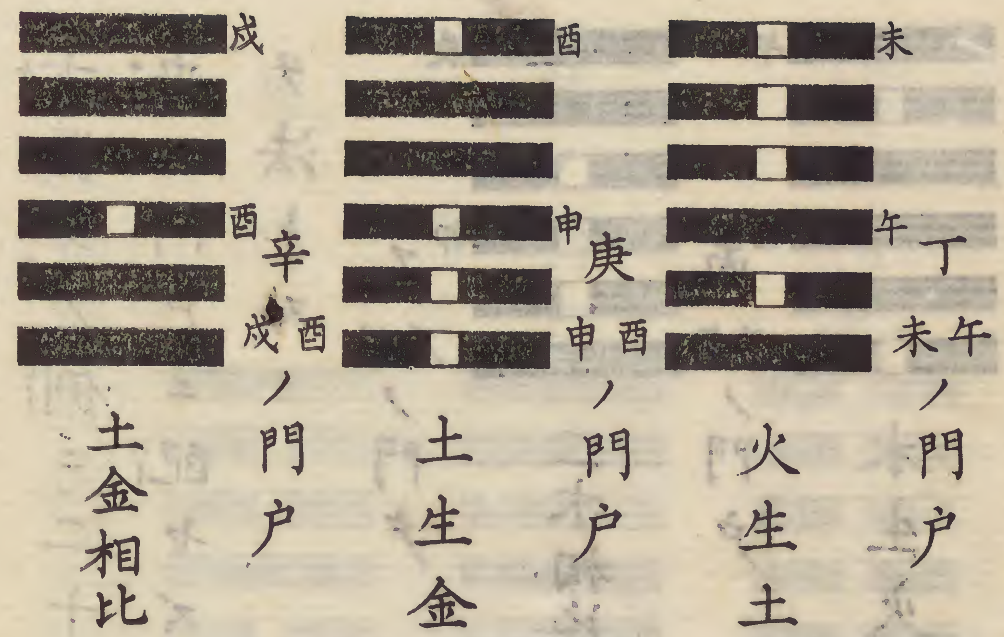 未
午
丁
未午
ノ門户
火生土
酉
申
庚
申酉
ノ門户
土生金
戌
酉
辛
戌酉
ノ門户
土金相比